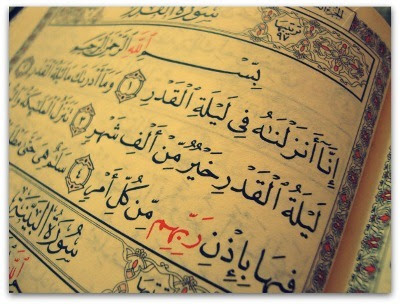 سُورَةُ القَدْرِ ترتيبها ٩٧
بِسْمِ ٱللَّهِ ٱلرَّحْمَٰنِ ٱلرَّحِيمِ
إِنَّآ أَنزَلْنَٰهُ فِى لَيْلَةِ ٱلْقَدْرِ ١ وَمَآ أَدْرَىٰكَ مَا لَيْلَةُ ٱلْقَدْرِ ٢
لَيْلَةُ ٱلْقَدْرِ خَيْرٌ مِّنْ أَلْفِ شَهْرٍ ٣ تَنَزَّلُ ٱلْمَلَٰٓئِكَةُ
فِيهَا بِإِذْنِ رَبِّهِم مِّن كُلِّ أَمْرٍ ٤ سَلَٰمٌ هِىَ حَتَّىٰ
سُورَةُ البَيِّنَةِ